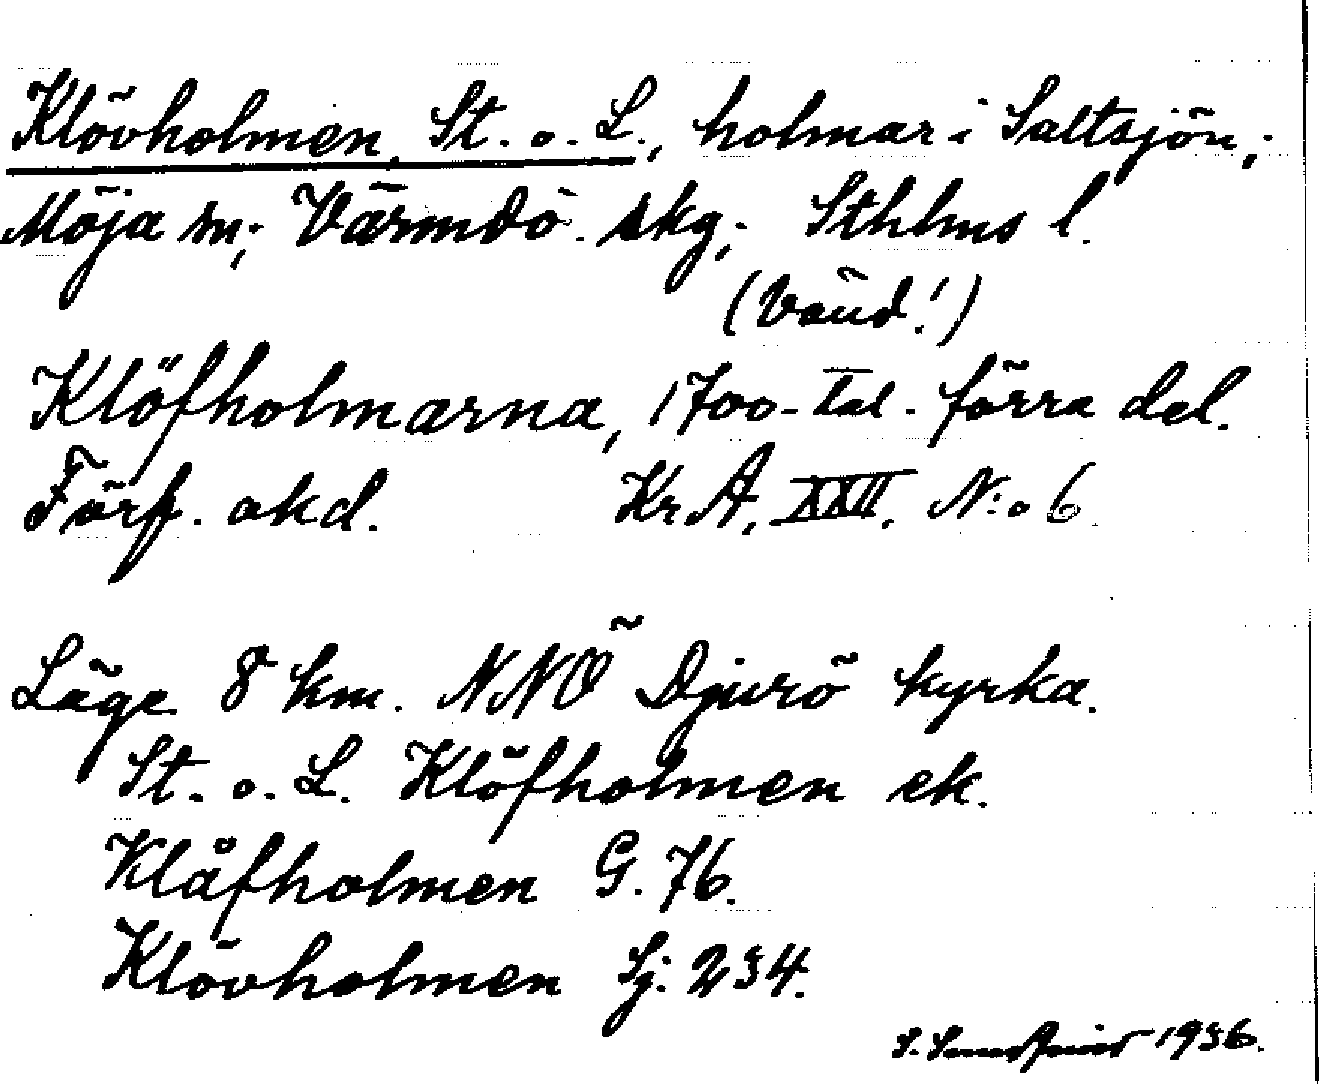 Klövholmen, St. o. L., holmar i Saltsjön,;
Möja sn; Värmdö skg,; Sthlms l.
(Vänd!)
Klöfholmarna, 1700-tal. förra del.
Förf. okd. Kr.A. XXII. N:o 6
Läge 8 km. NNÖ Djurö kyrka.
St. o. L. Klöfholmen ek.
Klåfholmen G. 76.
Klövholmen Sj. 234.
S. 1936.